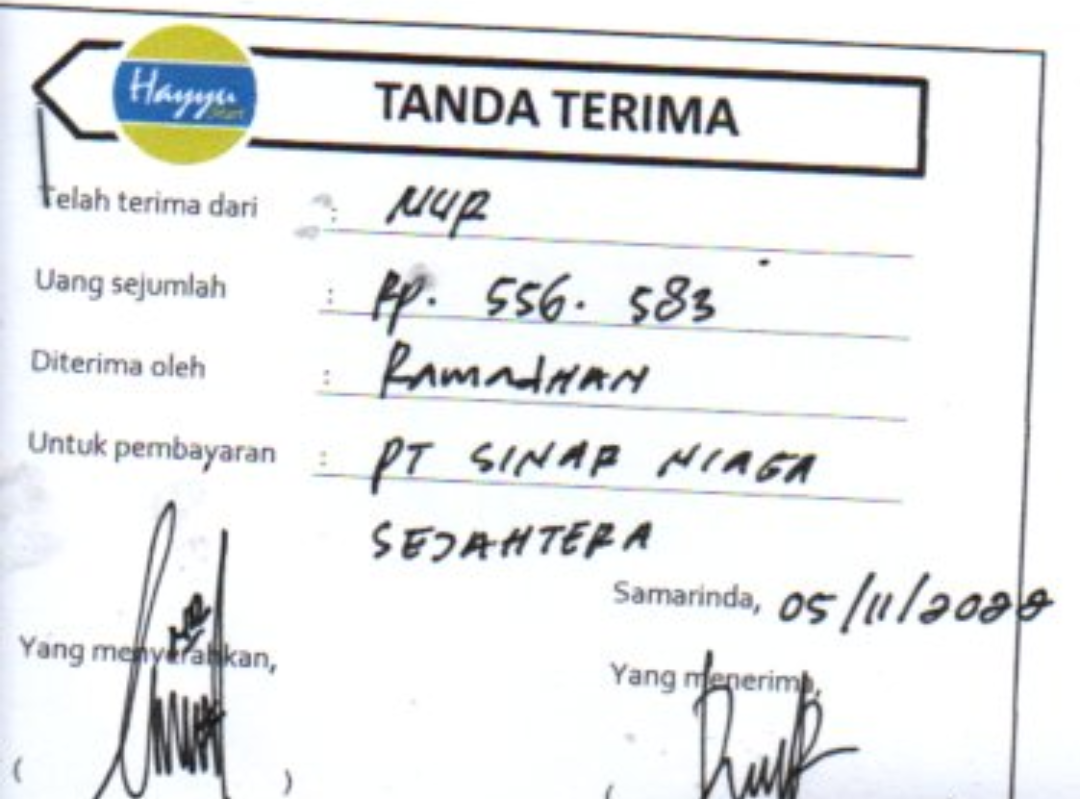 Hayyu
TANDA TERIMA
Telah terima dari : NUR
Uang sejumlah : Rp. 556. 583
Diterima oleh : RAMADHAN
Untuk pembayaran : PT SINAR NIAGA
SEJAHTERA
Samarinda, 05/11/2022
Yang menyerahkan,
Yang menerima,
( )
(